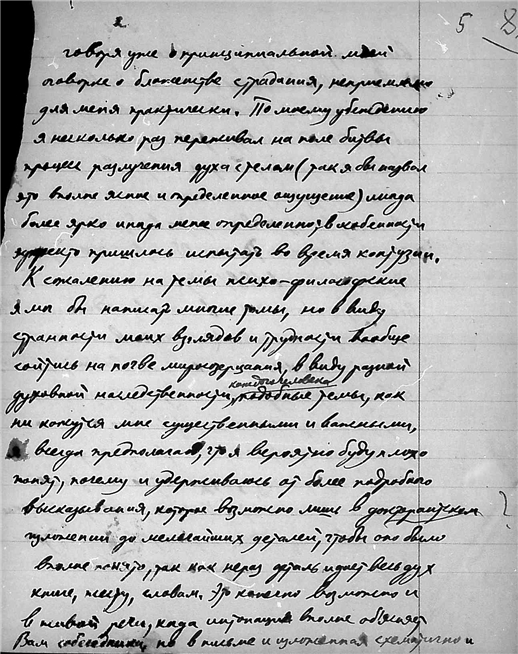 2
5
говоря уже о принципиальной моей
оговорке о блаженстве страдания, неприемлемо
для меня практически. По моему убеждению
я несколько раз переживал на поле битвы
процесс разлучения духа с телом (так я бы назвал
это вполне ясное и определенное ощущение) иногда
более ярко иногда менее определенно в особенности
пришлось испытать во время контузии.
К сожалению на темы психо-философские
я мог бы написать многие томы, но в виду
странности моих взглядов и трудности вообще
сойтись на почве миросозерцания, в виду разной
каждого человека
духовной наследственности, подобные темы, как
ни кажутся мне существенными и важными,
всегда предполагаю, что я вероятно буду плохо
понят, почему и удерживаюсь от более подробного
высказывания, которое возможно лишь в
изложении до мельчайших деталей, чтобы оно было
вполне понято, так как нераз деталь идает весь дух
книге, жесту, словам. Это конечно возможно и
в живой речи, когда интонация вполне объясняет
Вам собеседника, но в письме и изложенная схематично и